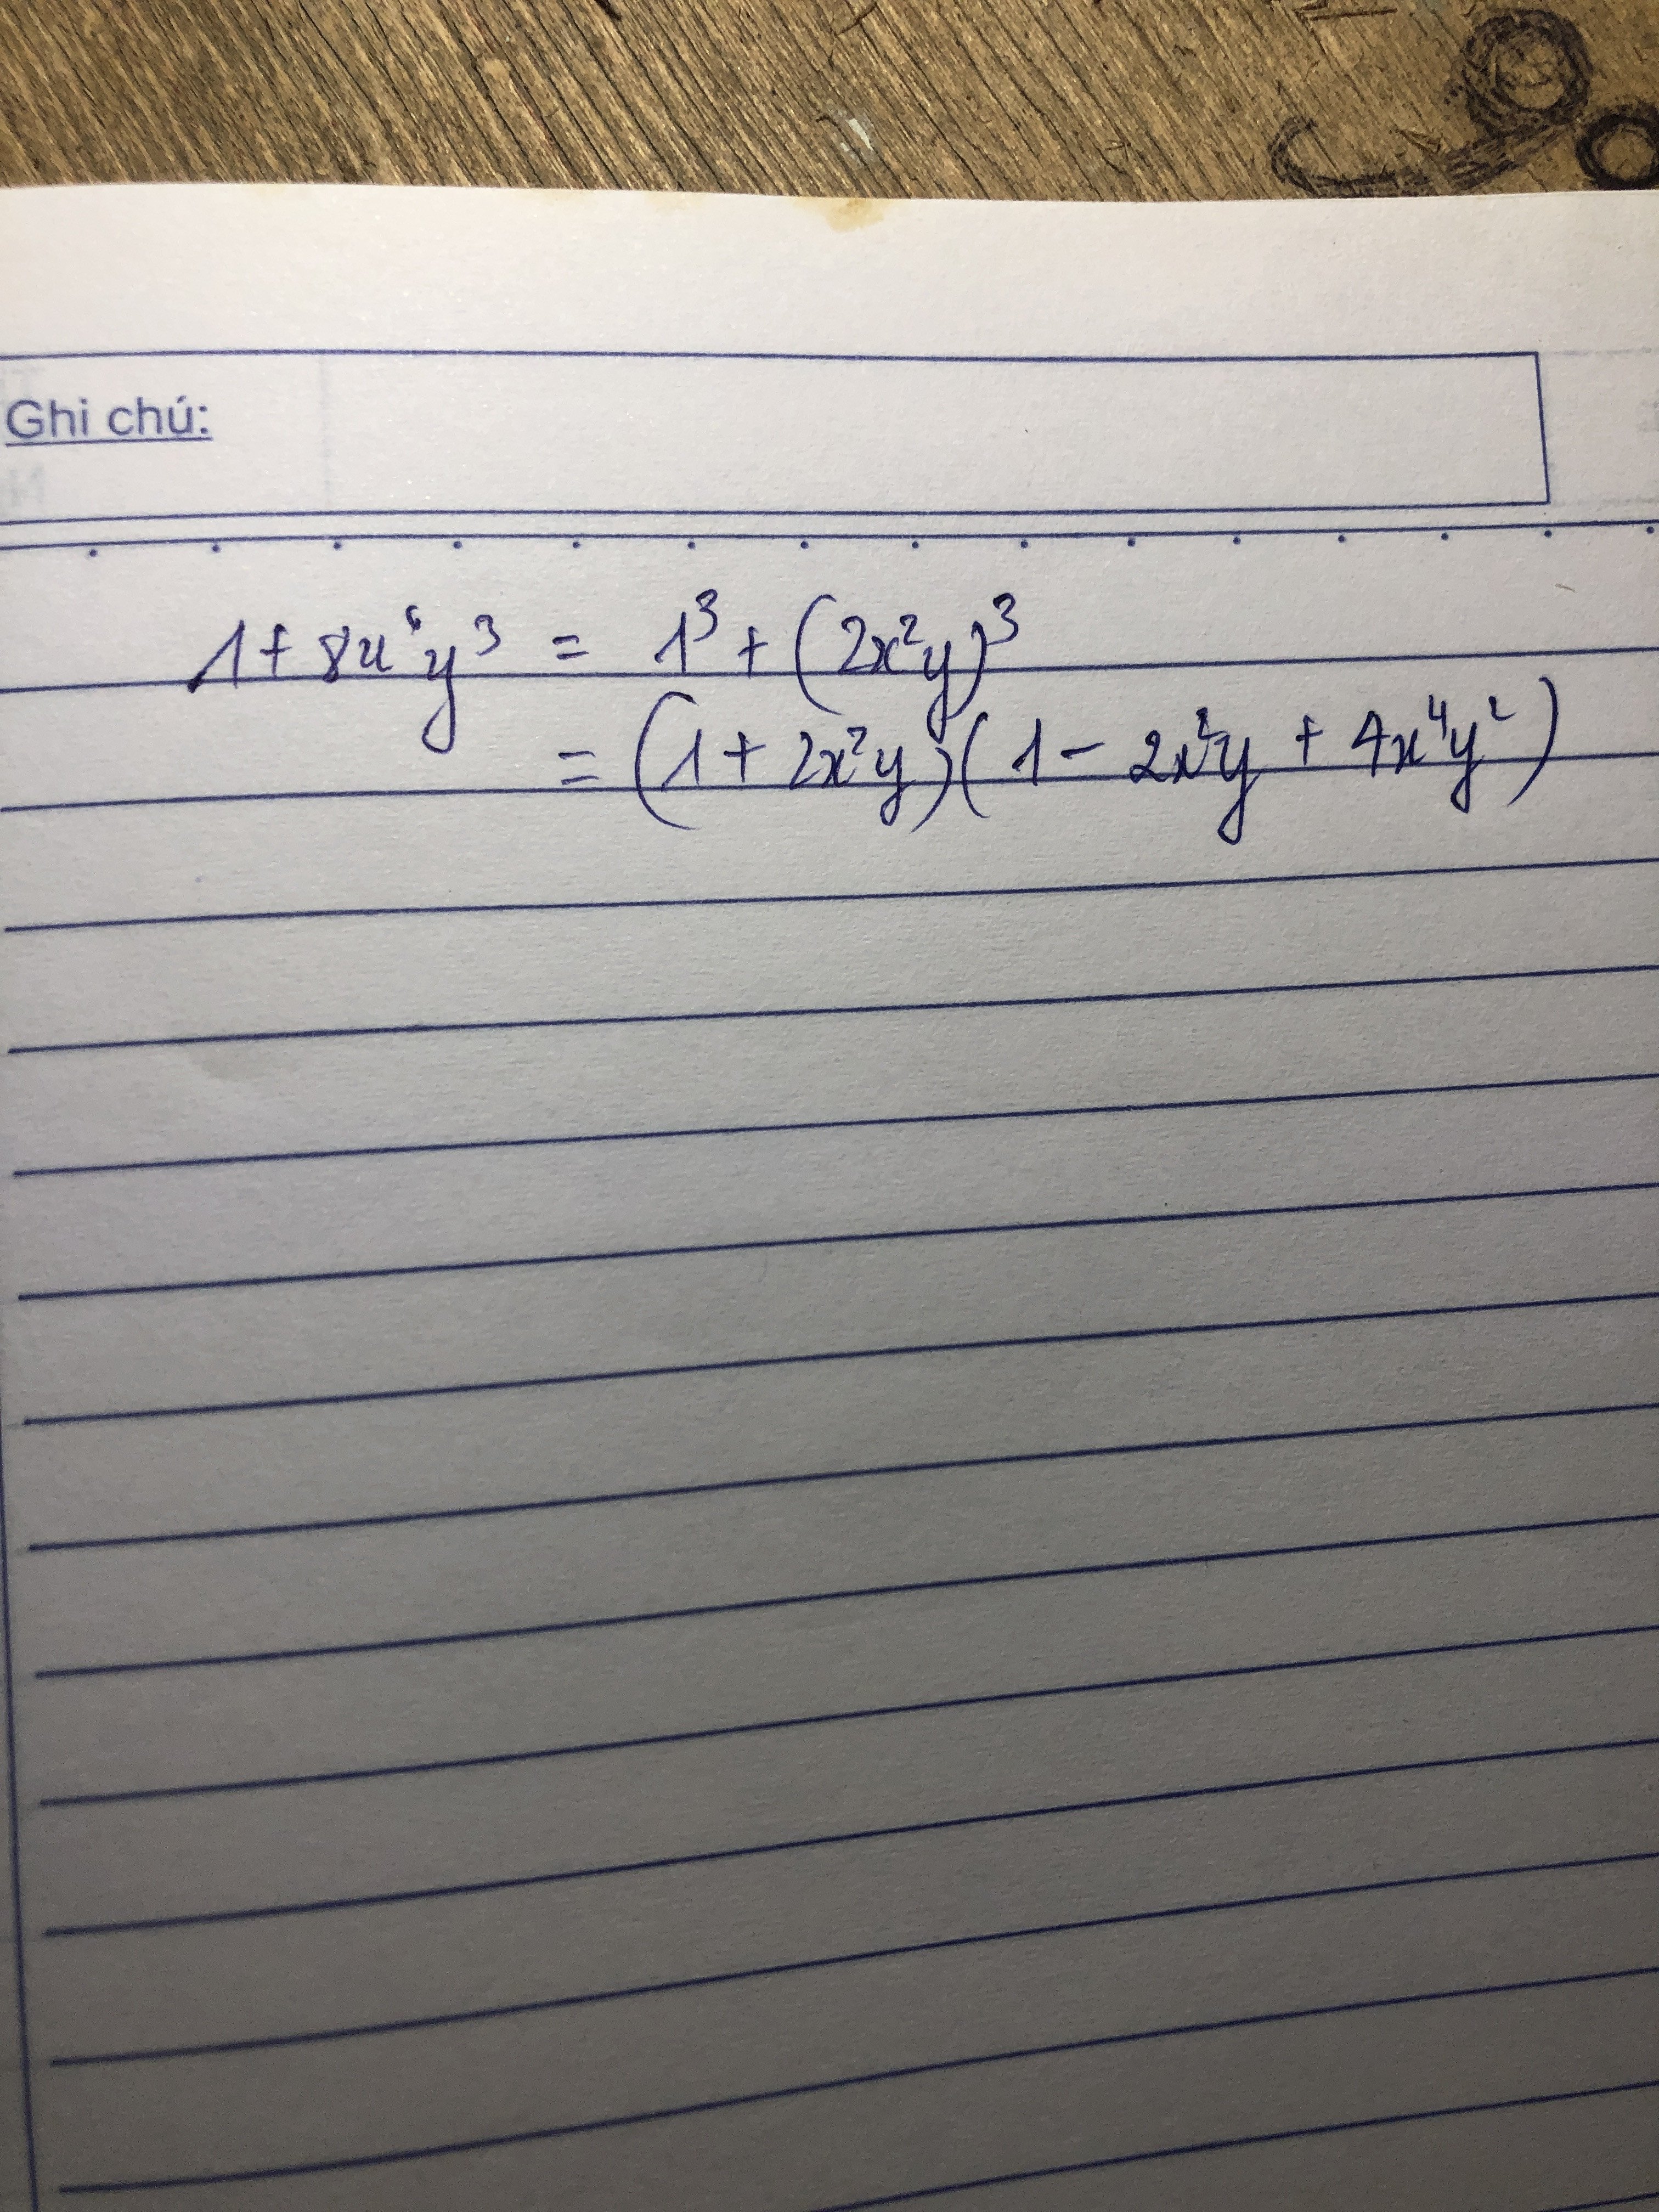 Ghi chú:
1 + 8x⁶y³ = 1³ + (2x²y)³
= (1 + 2x²y)(1 - 2x²y + 4x⁴y²)